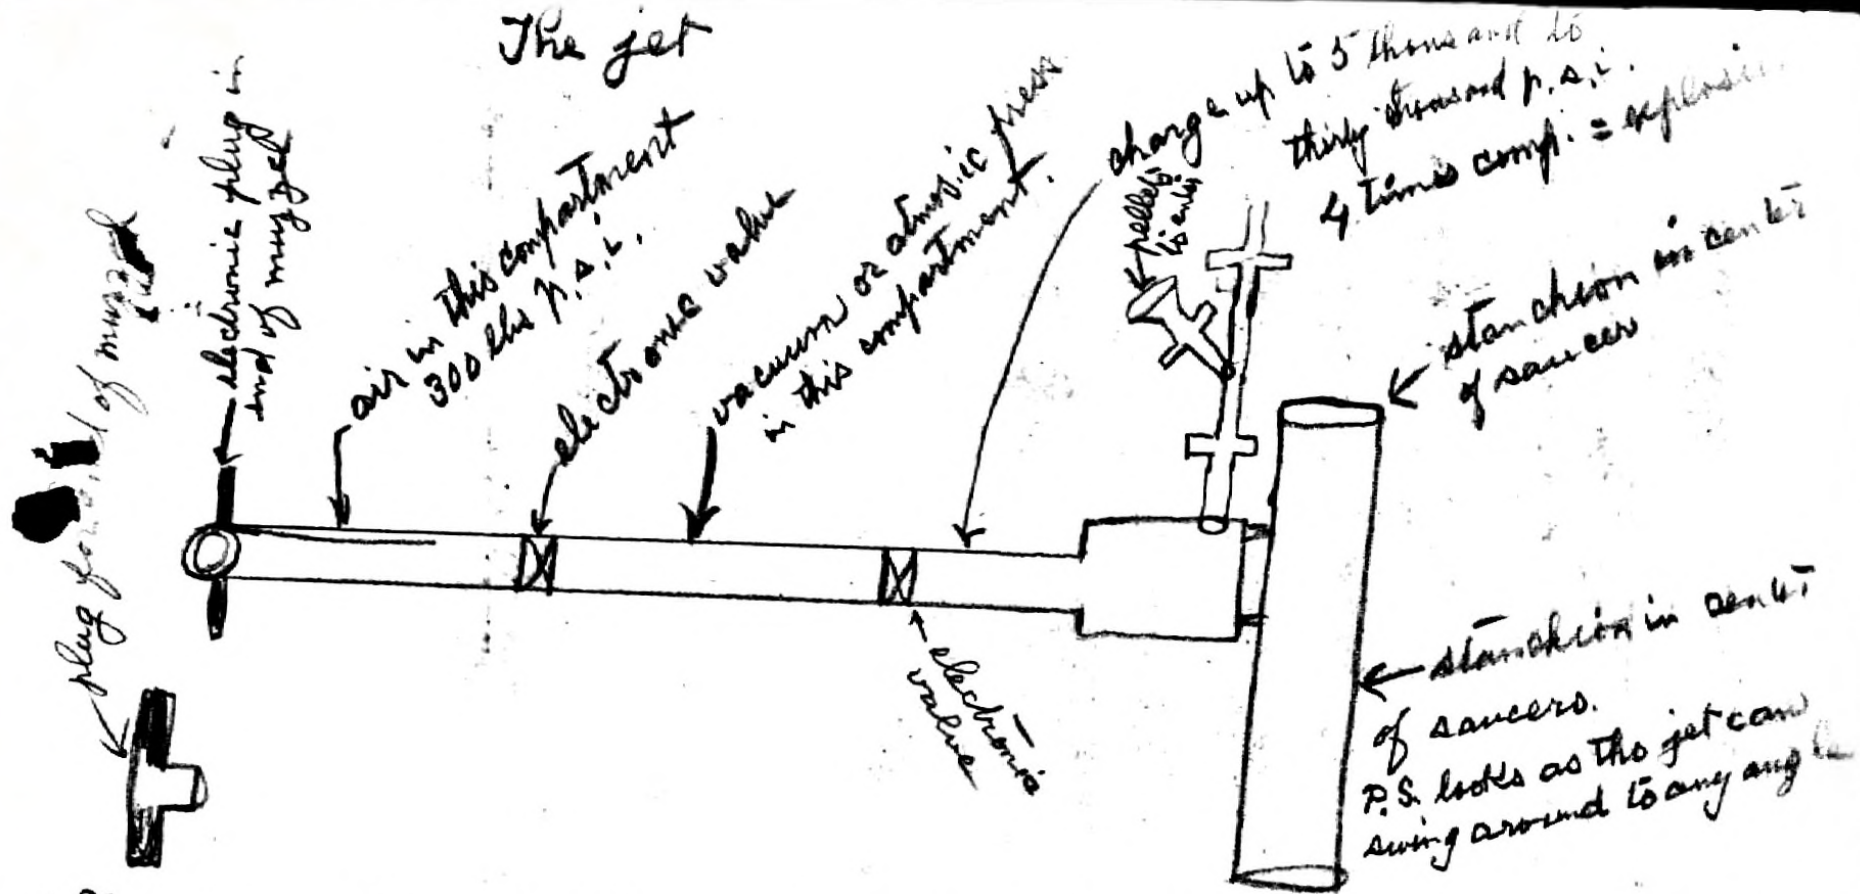 The jet
electronic plug in
end of muzzel
plug for end of muzzel
air in this compartment
300 lbs p.s.i.
electronic valve
vacuum or atmosic press
in this compartment.
charge up to 5 thousand to
thirty thousand p.s.i.
4 times comp. = explosion
pellets
to enter
stanchion in center
of saucer
electronic
valve
stanchion in center
of saucers.
P.S. looks as tho jet can
swing around to any angle